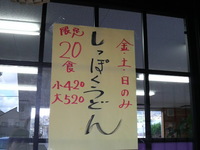 金土・日のみ
しっぽくうどん
限定
20
食
小420
大520